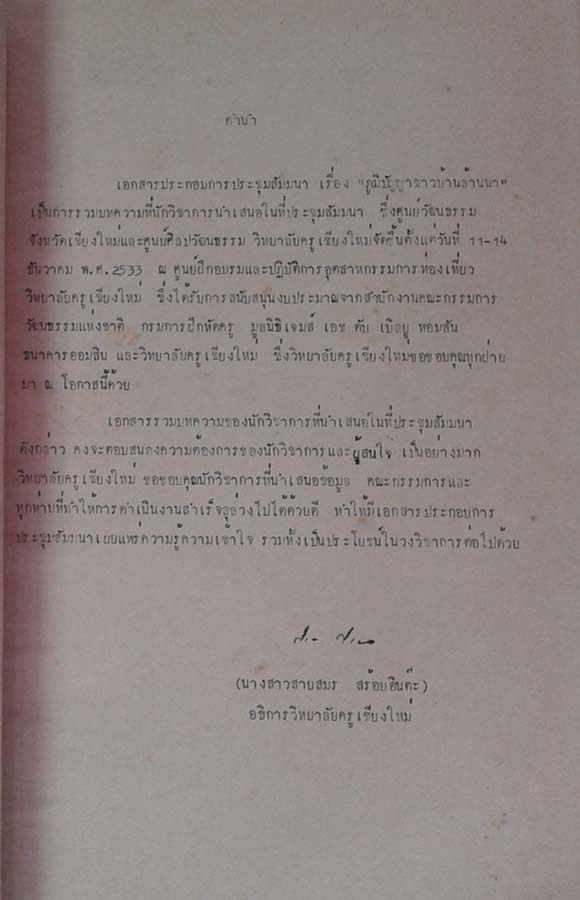 คำนำ
เอกสารประกอบการประชุมสัมมนา เรื่อง "ภูมิปัญญาชาวบ้านล้านนา"
เป็นการรวมบทความที่นักวิชาการนำเสนอในที่ประชุมสัมมนา ซึ่งศูนย์วัฒนธรรม
จังหวัดเชียงใหม่และศูนย์ศิลปวัฒนธรรม วิทยาลัยครูเชียงใหม่จัดขึ้นตั้งแต่วันที่ 11-14
ธันวาคม พ.ศ.2533 ณ ศูนย์ฝึกอบรมและปฏิบัติการอุตสาหกรรมการท่องเที่ยว
วิทยาลัยครูเชียงใหม่ ซึ่งได้รับการสนับสนุนงบประมาณจากสำนักงานคณะกรรมการ
วัฒนธรรมแห่งชาติ กรมการฝึกหัดครู มูลนิธิเจมส์ เอช ดับ เบิลยู ทอมสัน
ธนาคารออมสิน และวิทยาลัยครูเชียงใหม่ ซึ่งวิทยาลัยครูเชียงใหม่ขอขอบคุณทุกฝ่าย
มา ณ โอกาสนี้ด้วย
เอกสารรวมบทความของนักวิชาการที่นำเสนอในที่ประชุมสัมมนา
ดังกล่าว คงจะตอบสนองความต้องการของนักวิชาการและผู้สนใจ เป็นอย่างมาก
วิทยาลัยครูเชียงใหม่ ขอขอบคุณนักวิชาการที่นำเสนอข้อมูล คณะกรรมการและ
ทุกท่านที่ทำให้การดำเนินงานสำเร็จลุล่วงไปได้ด้วยดี ทำให้มีเอกสารประกอบการ
ประชุมสัมมนาเผยแพร่ความรู้ความเข้าใจ รวมทั้งเป็นประโยชน์ในวงวิชาการต่อไปด้วย
(นางสาวสายสมร สร้อยอินต๊ะ)
อธิการวิทยาลัยครูเชียงใหม่